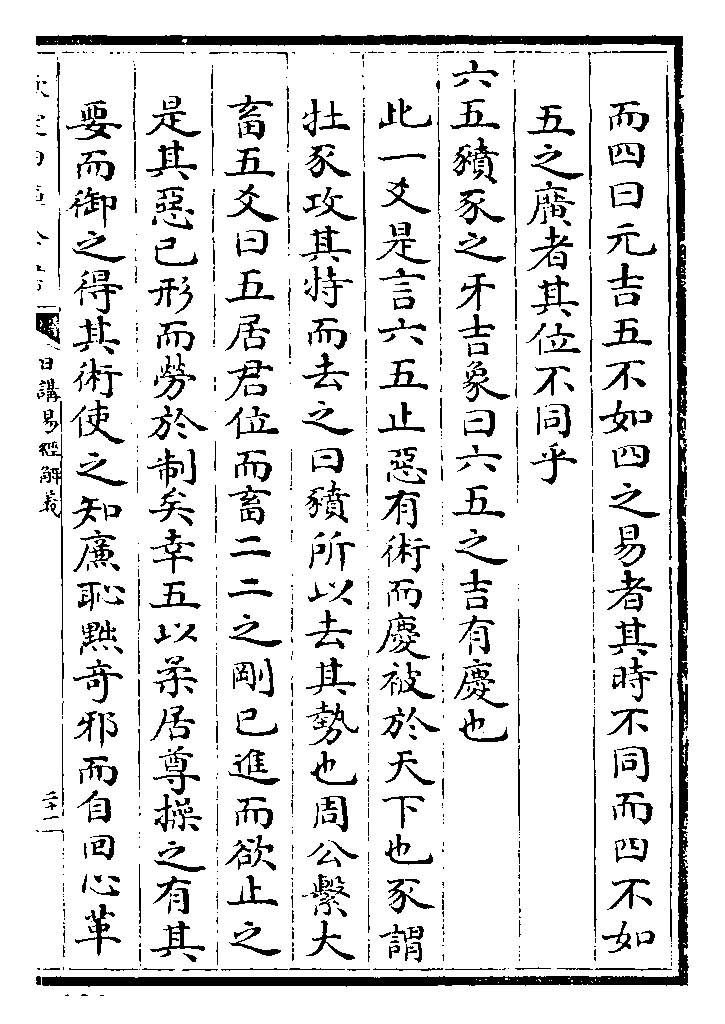 而四曰元吉五不如四之易者其時不同而四不如
五之廣者其位不同乎
六五豶豕之牙吉象曰六五之吉有慶也
此一爻是言六五止惡有術而慶被於天下也豕謂
牡豕攻其特而去之曰豶所以去其勢也周公繫大
畜五爻曰五居君位而畜二二之剛已進而欲止之
是其惡已形而勞於制矣幸五以柔居尊操之有其
要而御之得其術使之知廉恥黜奇邪而自回心革
日講易經解義
二十一